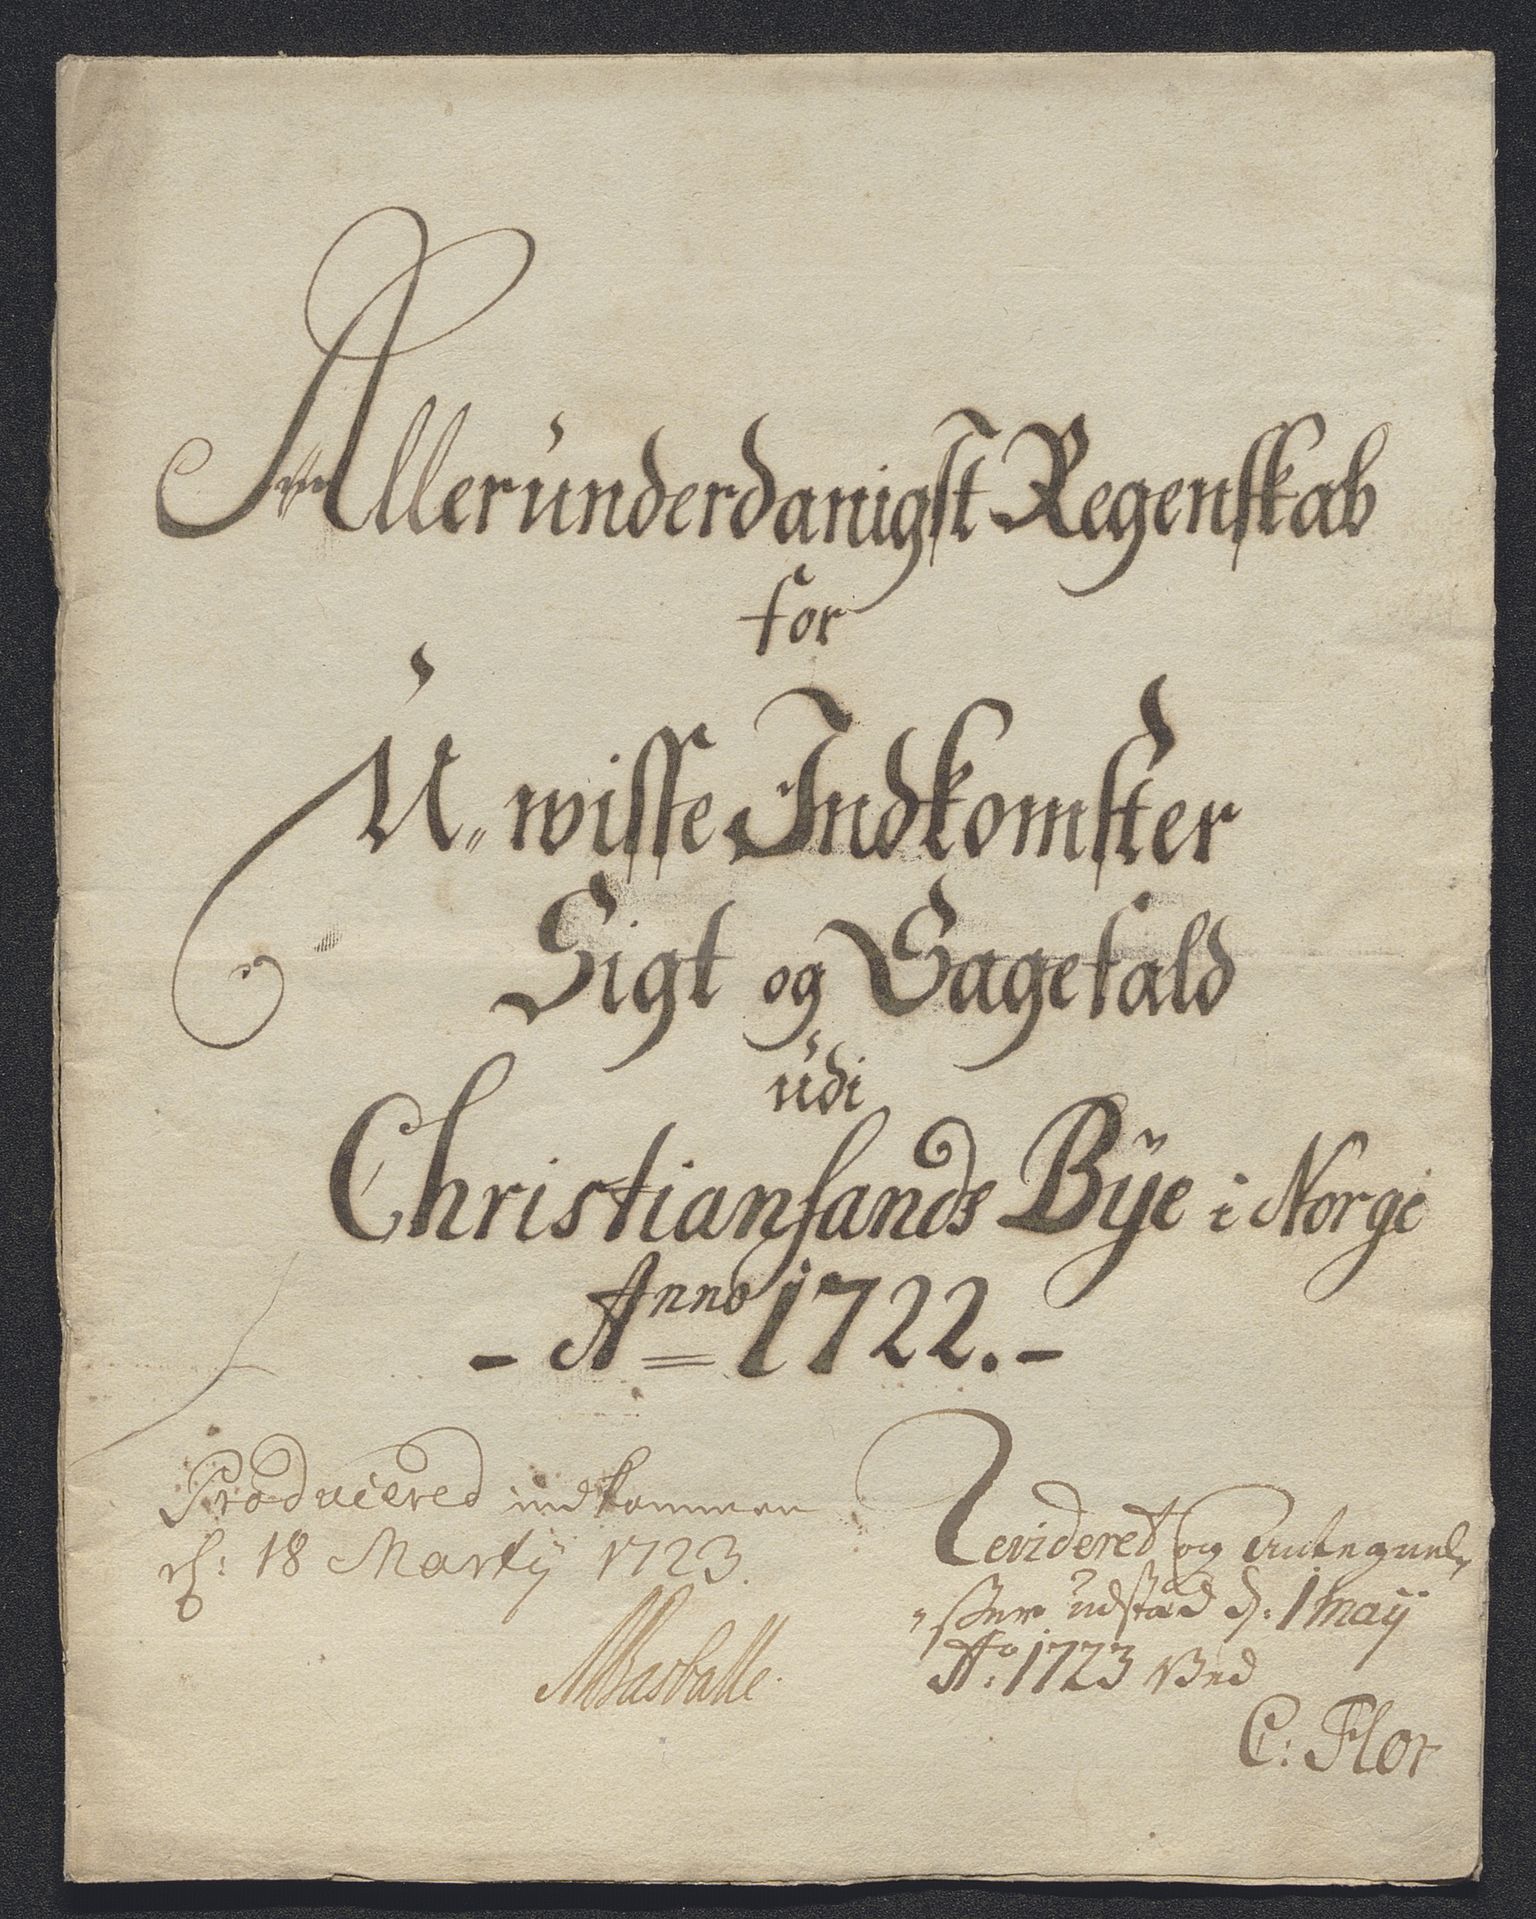 Allerunderdanigst Regenskab
for
U,, wisse Indkomster
Sigt og Sagefald
udi
Christiansands Bÿe i Norge
- Anno 1722. -
Producered indkommen
d: 18 Martÿ 1723.
Revideret og Antegnel,,
,,ßer udstæd d: 1 maÿ
Ao: 1723 Ved
C: Flor